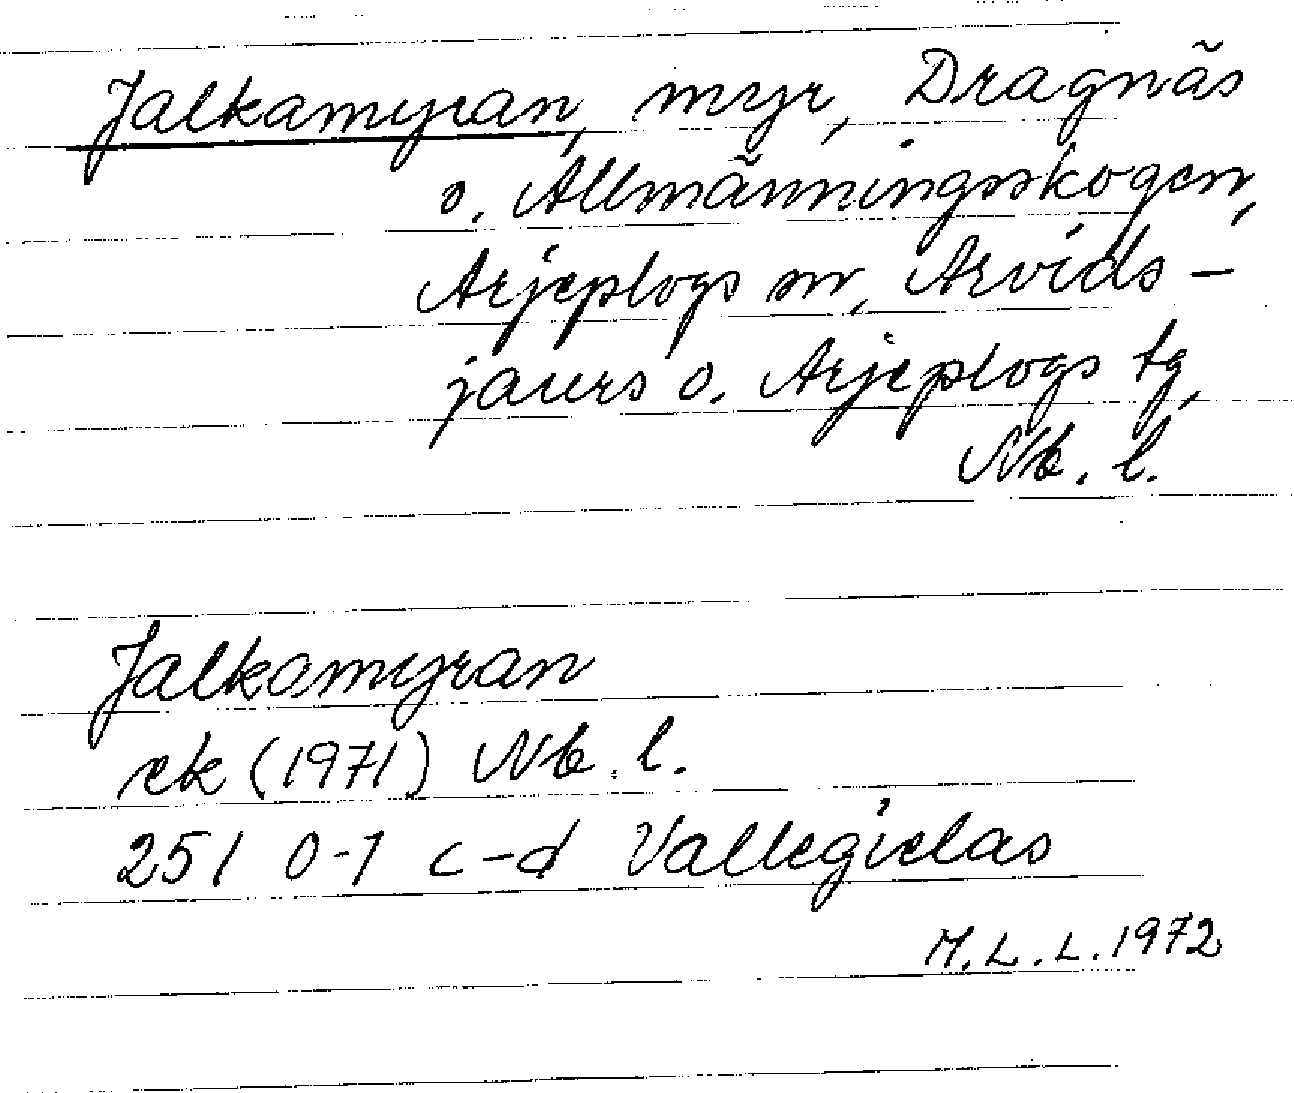 Jalkamyran, myr, Dragnäs
o. Allmänningsskogen,
Arjeplogs sn, Arvids-
jaurs o. Arjeplogs tg,
Nb. l.
Jalkamyran
ek (1971) Nb. l.
25 I 0-1 c-d Vallegielas
M.L.L. 1972